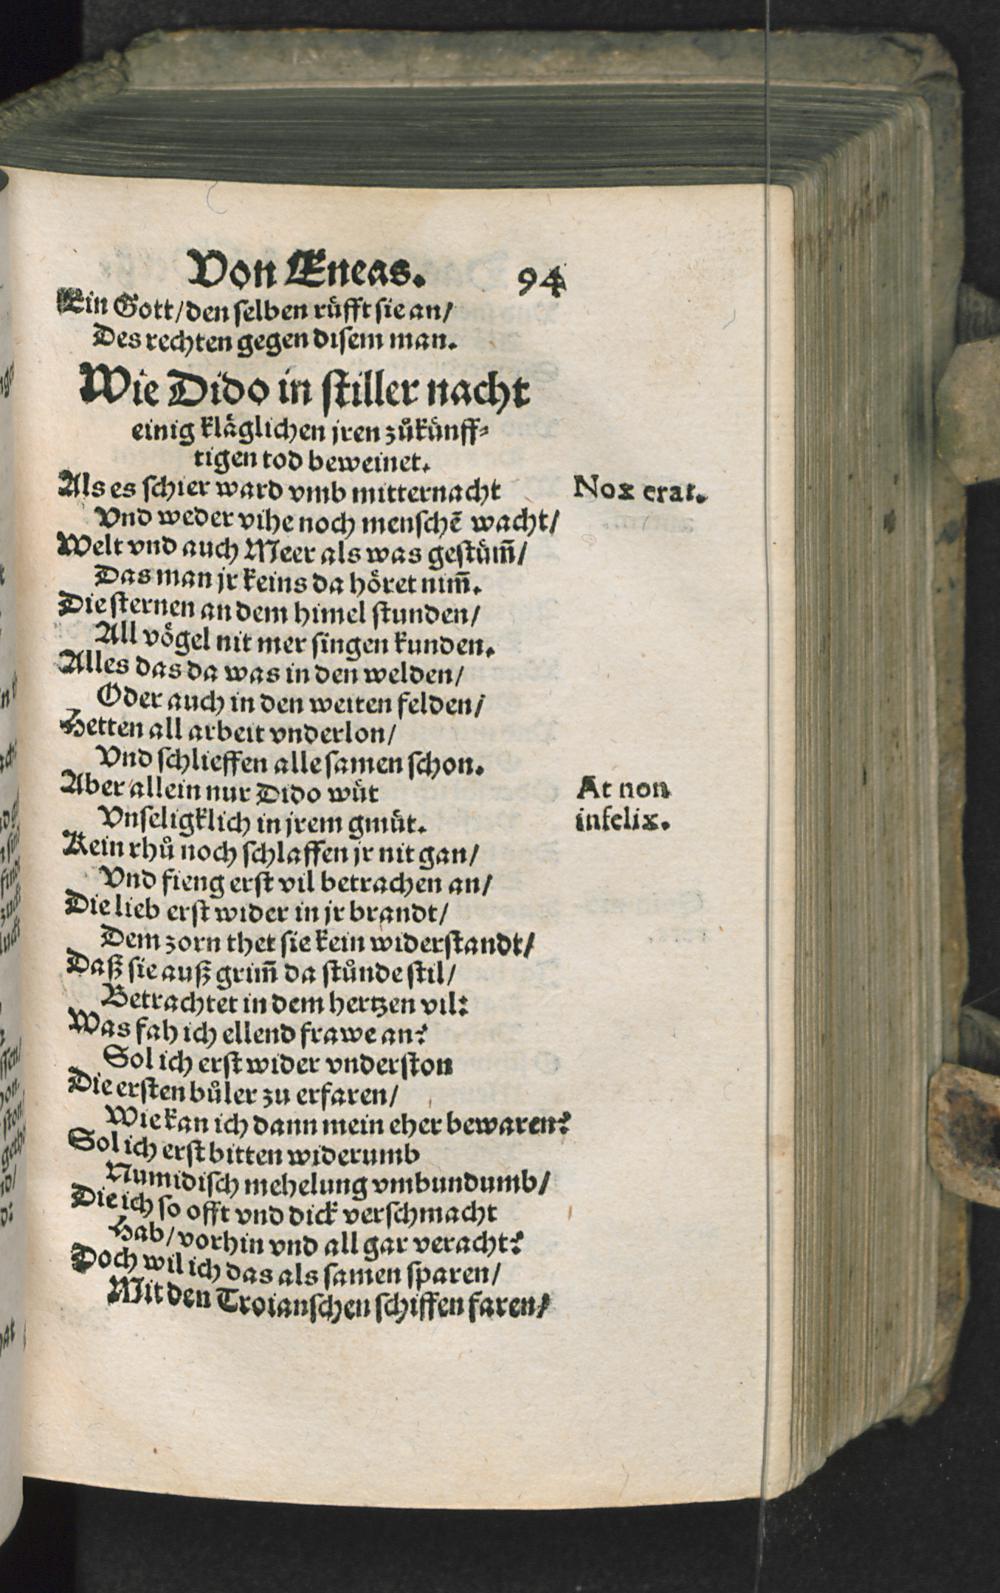 Von Æneas. 94
Ein Gott/den selben rüfft sie an/
Des rechten gegen disem man.
Wie Dido in stiller nacht
einig kläglichen jren zůkünff⸗
tigen tod beweinet.
Als es schier ward vmb mitternacht
Nox erat.
Vnd weder vihe noch menschē wacht/
Welt vnd auch Meer als was gestüm̃/
Das man jr keins da höret nim̃.
Die sternen an dem himel stunden/
All vögel nit mer singen kunden.
Alles das da was in den welden/
Oder auch in den weiten felden/
Hetten all arbeit vnderlon/
Vnd schlieffen alle samen schon.
Aber allein nur Dido wüt
At non
Vnseligklich in jrem gmüt.
infelix.
Kein rhů noch schlaffen jr nit gan/
Vnd fieng erst vil betrachen an/
Die lieb erst wider in jr brandt/
Dem zorn thet sie kein widerstandt/
Daß sie auß grim̃ da stůnde stil/
Betrachtet in dem hertzen vil:
Was fah ich ellend frawe an?
Sol ich erst wider vnderston
Die ersten bůler zu erfaren/
Wie kan ich dann mein eher bewaren?
Sol ich erst bitten widerumb
Numidisch mehelung vmbundumb/
Die ich so offt vnd dick verschmacht
Hab/vorhin vnd all gar veracht?
Doch wil ich das als samen sparen/
Mit den Troianschen schiffen faren/